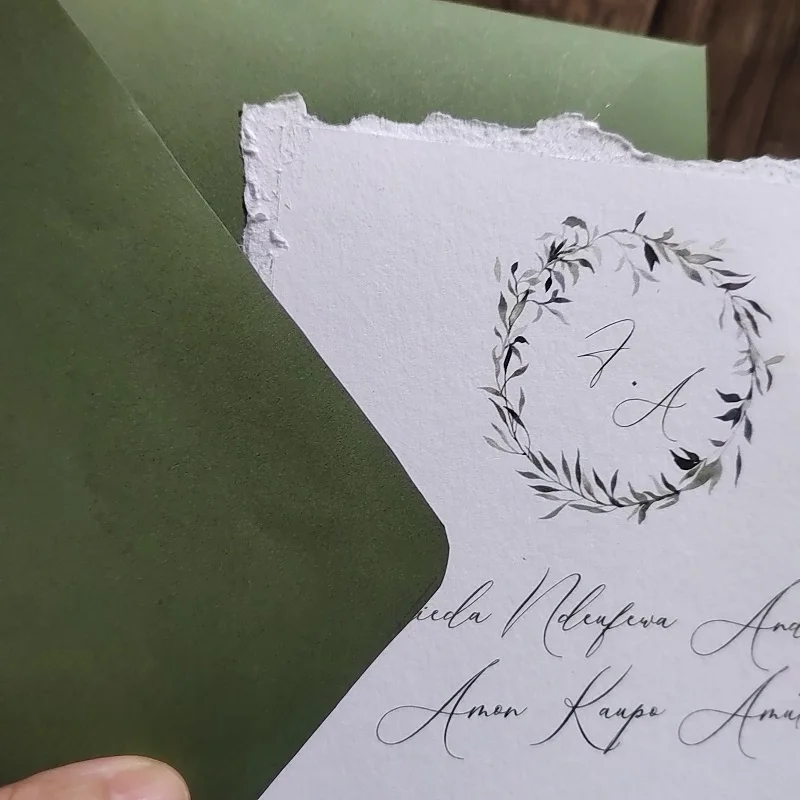 F
.
A
ieda Ndeufewa And
Amon Kaupo Amu